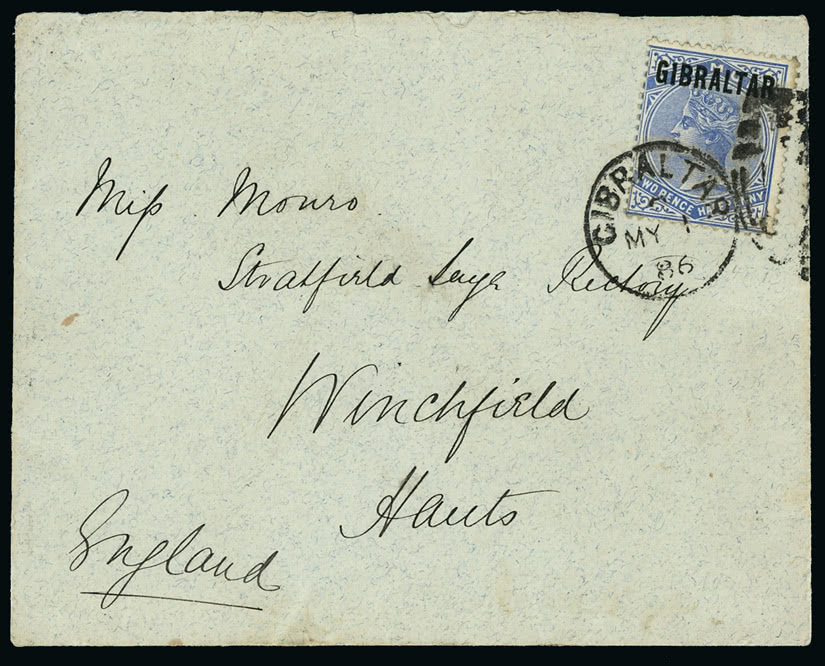 GIBRALTAR
TWO PENCE HALFPENNY
GIBRALTAR
MY 1
86
Miss Monro
Stratfield Saye Rectory
Winchfield
Hants
England